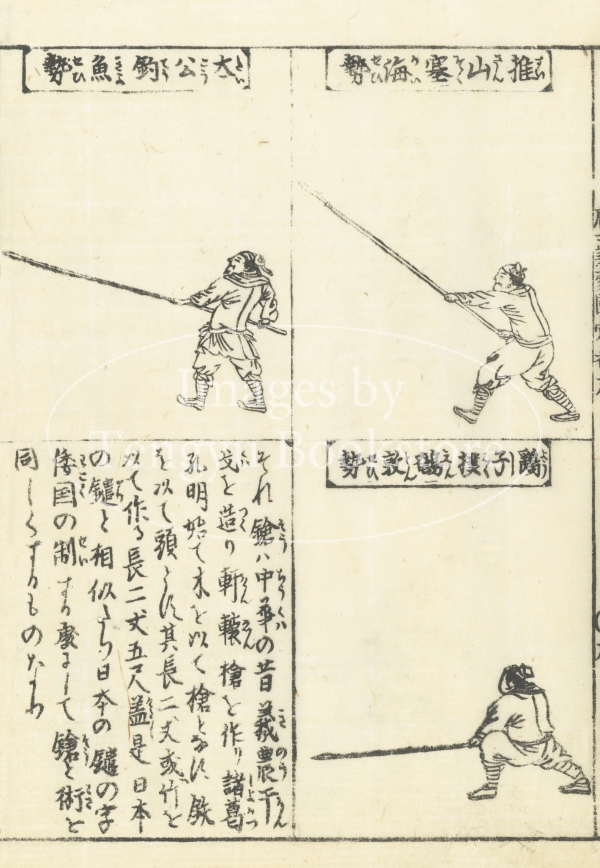 推山塞海勢
太公釣魚勢
鷂子撲鵪鶉勢
それ鎗ハ中華の昔義農干
戈を造り軒轅槍を作り諸葛
孔明始て木を以て槍となす鉄
を以て頭とす其長二丈或竹を
以て作る長二丈五尺盖是日本
の鑓と相似たり日本の鑓の字
倭国の制する處にして鎗と術を
同しくするものなり
Images by
Tenri Bookstore